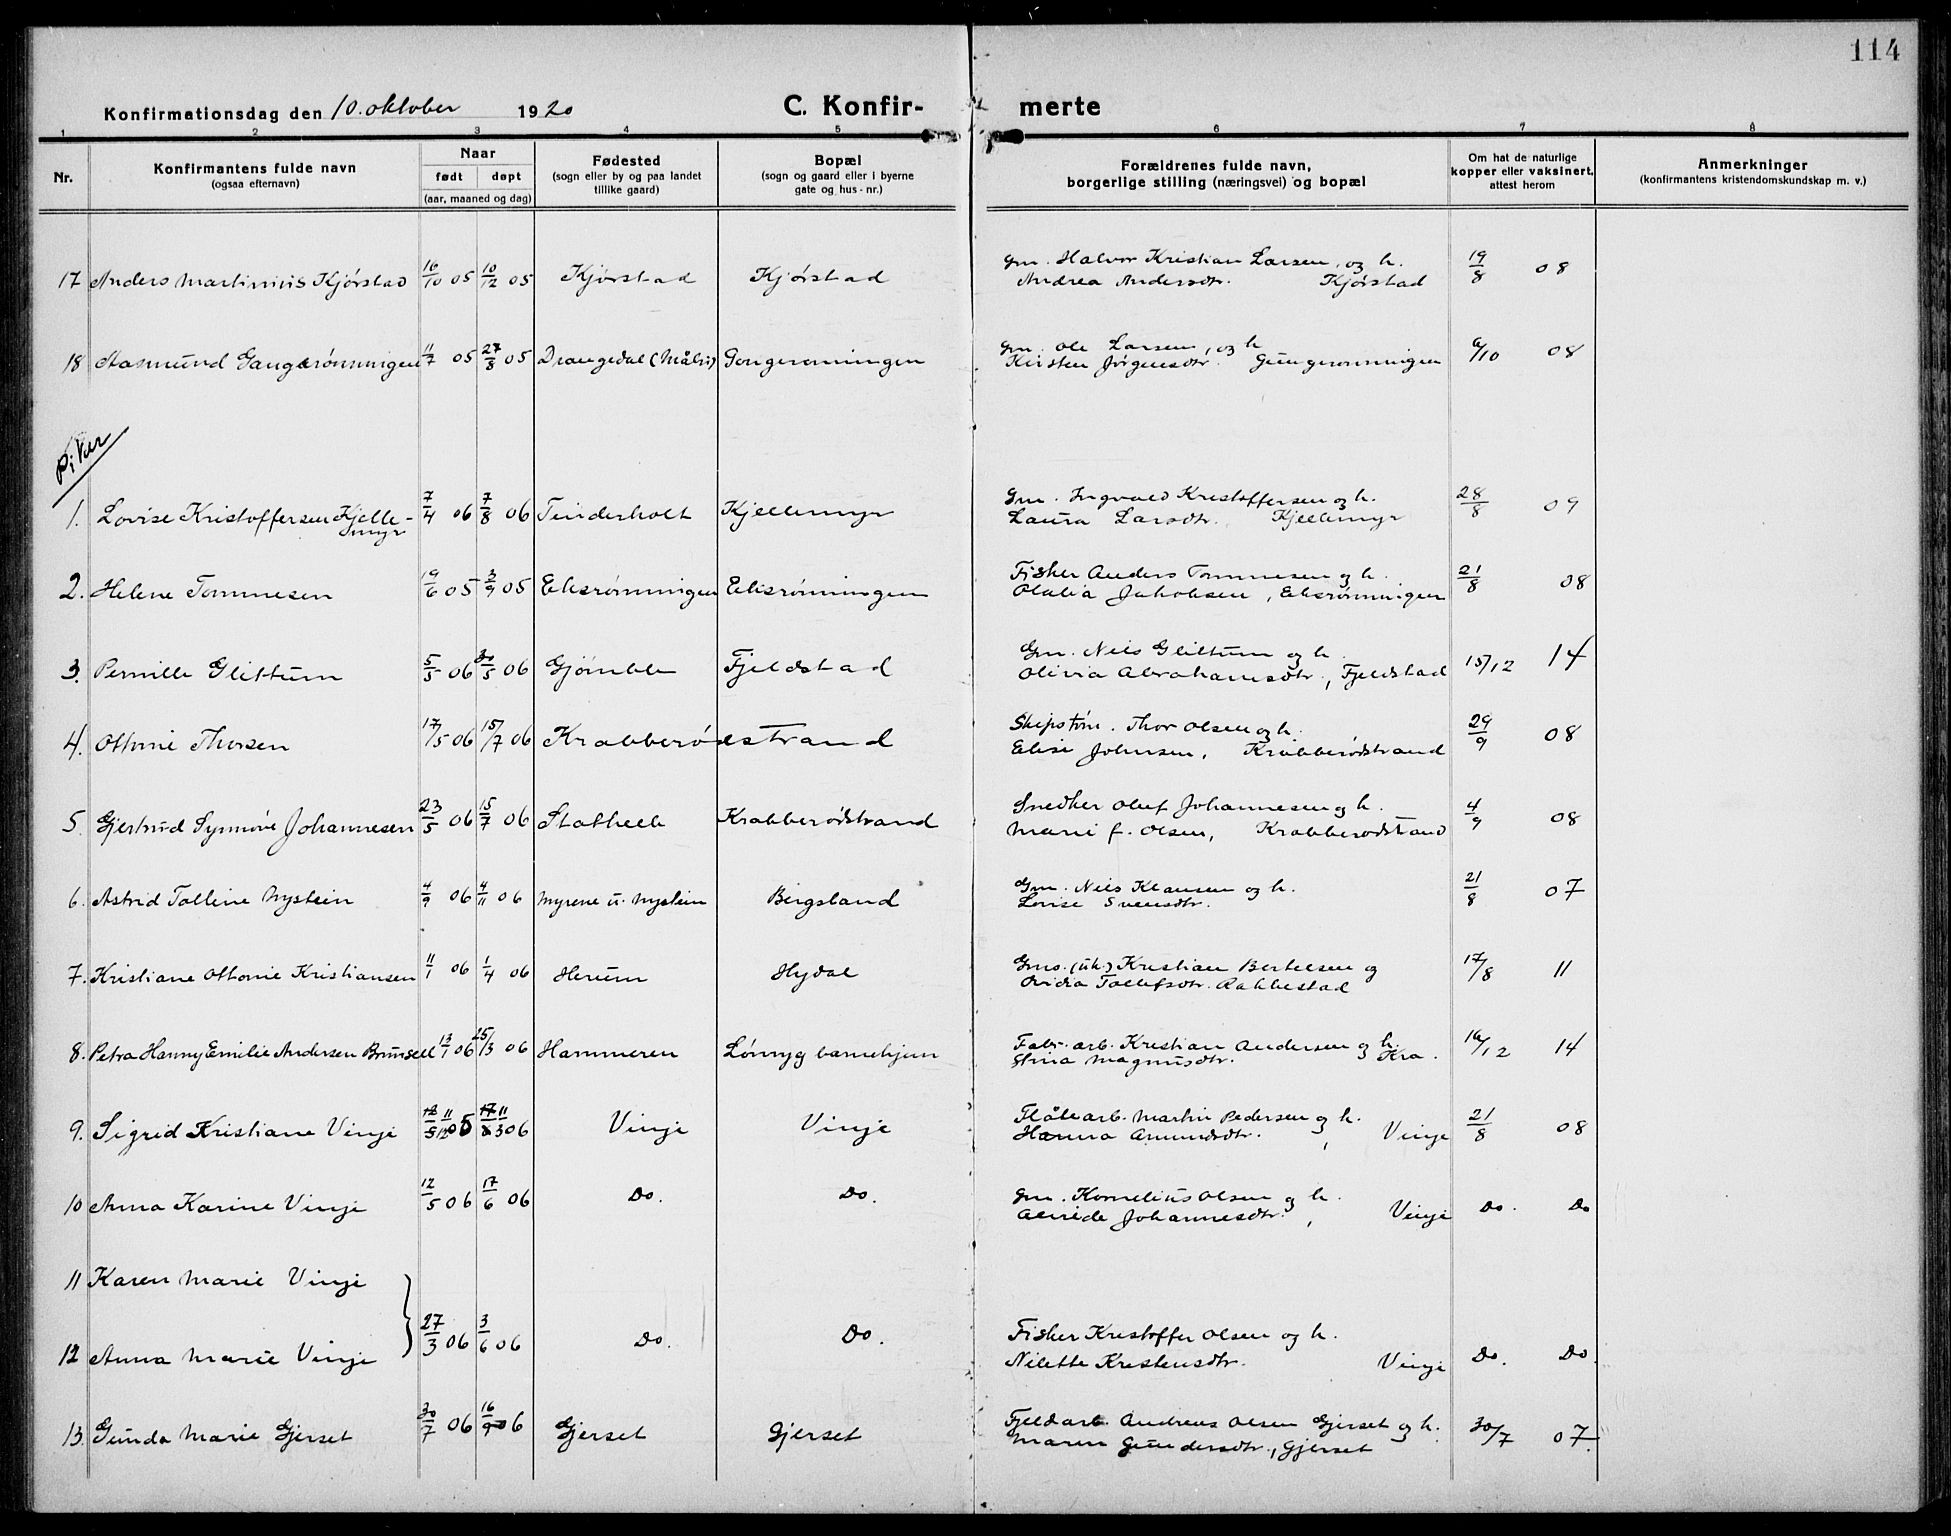 114
Konfirmationsdag den 10. oktober 1920
C. Konfir- merte
1 2 3 4 5 6 7 8
Nr.
Konfirmantens fulde navn
(ogsaa efternavn)
Naar
født døpt
(aar, maaned og dag)
Fødested
(sogn eller by og paa landet
tillike gaard)
Bopæl
(sogn og gaard eller i byerne
gate og hus-nr.)
Forældrenes fulde navn,
borgerlige stilling (næringsvei) og bopæl
Om hat de naturlige
kopper eller vaksinert,
attest herom
Anmerkninger
(konfirmantens kristendomskundskap m. v.)
17 Anders Martinius Kjørstad 16/10 05 10/12 05 Kjørstad Kjørstad Gm. Halvor Kristian Larsen, og h. 19/8 08
Andrea Andersdtr. Kjørstad
18 Aasmund Gangerønningen 11/7 05 27/8 05 Drangedal Gongerønningen Gm. Ole Larsen, og h 6/10 08
Kirsten Jørgensdtr. Gungerønningen
Piker
1. Lovise Kristoffersen Kjelle- 7/4 06 7/8 06 Tinderholt Kjellemyr Gm. Ingvald Kristoffersen og h. 28/8 09
myr Laura Larsdtr. Kjellemyr
2. Helene Tommesen 19/6 05 3/9 05 Eiksrønningen Eiksrønningen Fisker Anders Tommesen og h. 21/8 08
Olalia Jakobsen, Eiksrønningen
3. Pernille Glittum 5/5 06 30/5 06 Gjømle Fjeldstad Gm. Niels Glittum og h. 15/12 14
Olivia Abrahamsdtr., Fjeldstad
4. Othonie Thorsen 17/5 06 15/7 06 Krabberødstrand Skipstøm. Thor Olsen og h. 29/9 08
Elise Johnsen, Krabberødstrand
5. Gjertrud Synnøve Johannesen 23/5 06 15/7 06 Stathelle Krabberødstrand Snedker Oluf Johannesen og h. 4/9 08
Marie f. Olsen, Krabberødstrand
6. Astrid Talline Nystein 4/9 06 4/11 06 Myrene u. Nystein Bergsland Gm. Niels Klausen og h. 21/8 07
Lovise Svensdtr.
7. Kristiane Othonie Kristiansen 11/1 06 1/4 06 Herum Hydal Gms. (uk.) Kristian Bertelsen og 17/8 11
Ovidia Tollefsdtr. Rakkestad
8. Petra Hanny Emilie Andersen Brunsell 13/1 06 25/3 06 Hammeren Lønnyg barnehjem Fabr. arb. Kristian Andersen og h. 16/12 14
Stina Magnusdtr. Kra.
9. Sigrid Kristiane Vinje 12/5 11/12 05 17/6 11/3 06 Vinje Vinje Flåtearb. Martin Pedersen og h. 21/8 08
Hanna Amundsdtr. , Vinje
10 Anna Karine Vinje 12/5 06 17/6 06 Do. Do. Gm. Kornelius Olsen og h. Do. Do
Alvide Johannesdtr. , Vinje
11 Karen Marie Vinje
12 Anna Marie Vinje } 27/3 06 3/6 06 Do. Do. Fisker Kristoffer Olsen og h. Do. Do.
Nilette Kristensdtr. Vinje
13. Gunda Marie Gjerset 30/7 06 16/9 06 Gjerset Gjerset Fjeldarb. Andreas Olsen Gjerset og h. 30/7 07.
Maren Gundersdtr., Gjerset